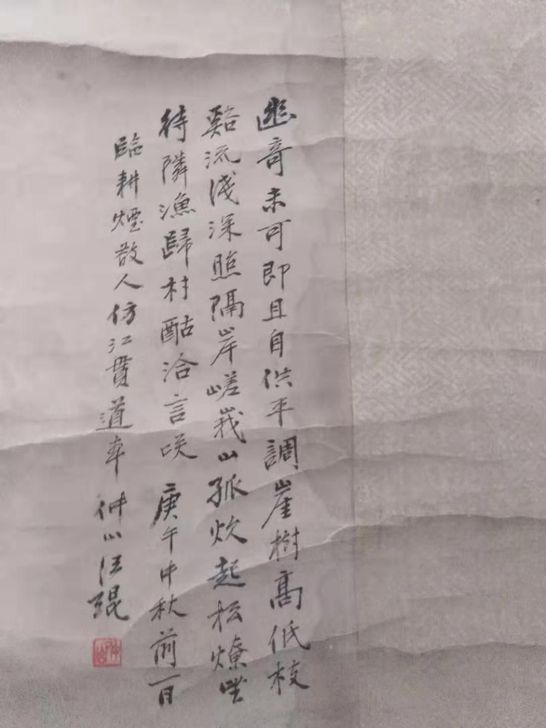 幽奇未可即且自供平調崖樹高低枝
谿流淺深照隔岸嵯峩山孤炊起松燎坐
待隣漁歸村酤洽言咲 庚午中秋前一日
臨耕煙散人仿江貫道本 仲山汪琨